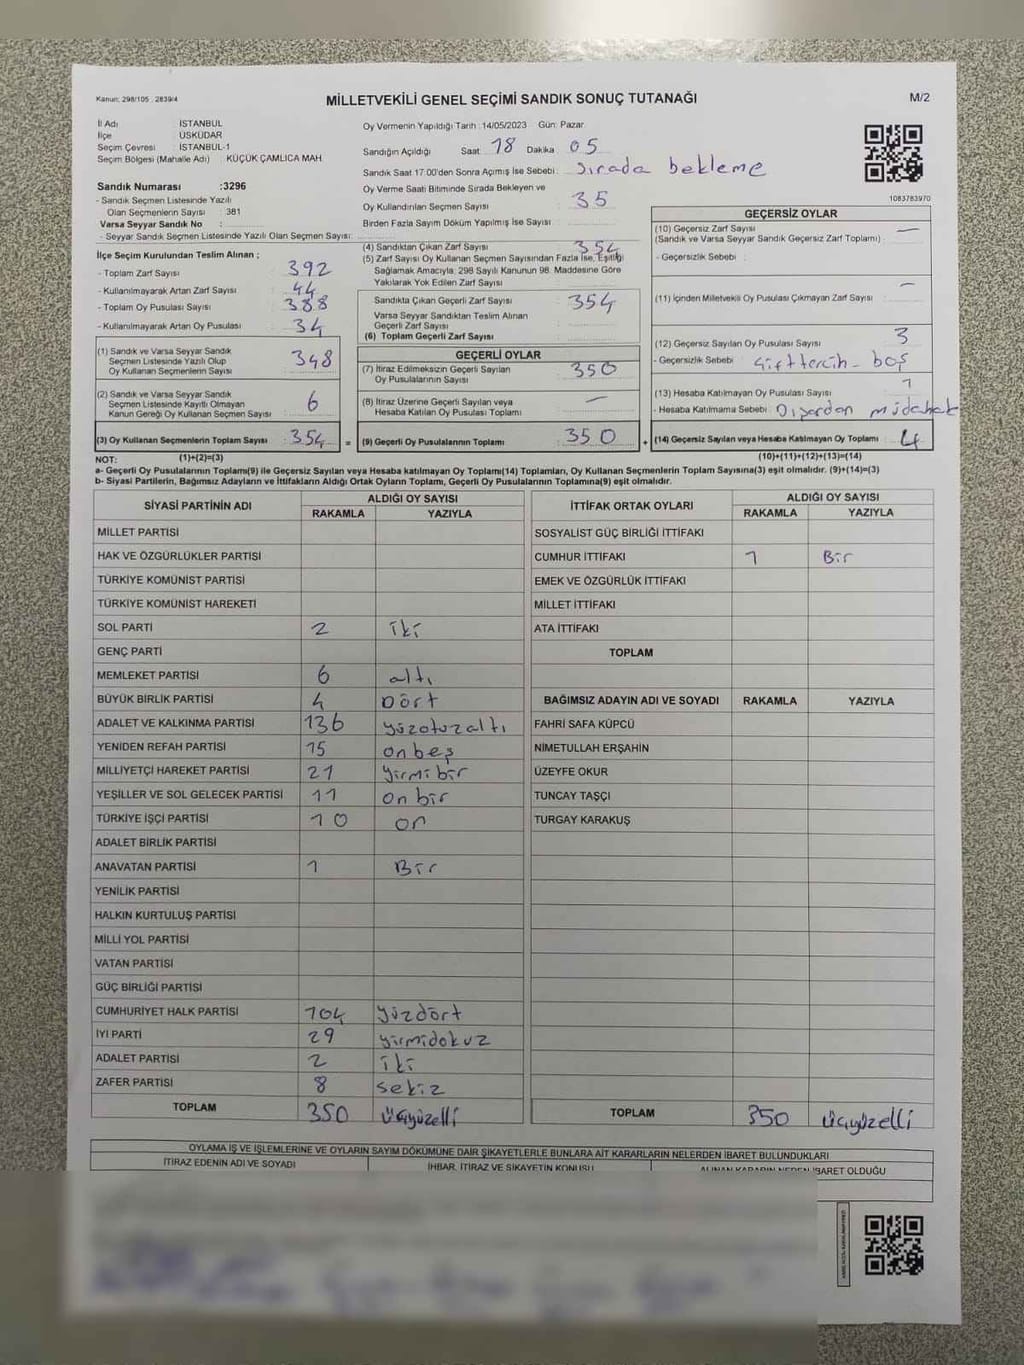 Kanun: 298/105 , 2839/4
MİLLETVEKİLİ GENEL SEÇİMİ SANDIK SONUÇ TUTANAĞI
M/2
İl Adı : İSTANBUL
İlçe : ÜSKÜDAR
Seçim Çevresi : İSTANBUL-1
Seçim Bölgesi (Mahalle Adı) : KÜÇÜK ÇAMLICA MAH.
Sandık Numarası :3296
- Sandık Seçmen Listesinde Yazılı
Olan Seçmenlerin Sayısı : 381
Varsa Seyyar Sandık No :
- Seyyar Sandık Seçmen Listesinde Yazılı Olan Seçmen Sayısı:
İlçe Seçim Kurulundan Teslim Alınan ;
- Toplam Zarf Sayısı 392
- Kullanılmayarak Artan Zarf Sayısı 44
- Toplam Oy Pusulası Sayısı 388
- Kullanılmayarak Artan Oy Pusulası 34
(1) Sandık ve Varsa Seyyar Sandık
Seçmen Listesinde Yazılı Olup
Oy Kullanan Seçmenlerin Sayısı 348
(2) Sandık ve Varsa Seyyar Sandık
Seçmen Listesinde Kayıtlı Olmayan
Kanun Gereği Oy Kullanan Seçmen Sayısı 6
(3) Oy Kullanan Seçmenlerin Toplam Sayısı 354 =
Oy Vermenin Yapıldığı Tarih :14/05/2023 Gün: Pazar
Sandığın Açıldığı Saat 18 Dakika 05
Sandık Saat 17.00'den Sonra Açımış İse Sebebi : Sırada bekleme
Oy Verme Saati Bitiminde Sırada Bekleyen ve
Oy Kullandırılan Seçmen Sayısı 35
Birden Fazla Sayım Döküm Yapılmış İse Sayısı
(4) Sandıktan Çıkan Zarf Sayısı 354
(5) Zarf Sayısı Oy Kullanan Seçmen Sayısından Fazla İse, Eşitliği
Sağlamak Amacıyla, 298 Sayılı Kanunun 98. Maddesine Göre
Yakılarak Yok Edilen Zarf Sayısı
Sandıkta Çıkan Geçerli Zarf Sayısı 354
Varsa Seyyar Sandıktan Teslim Alınan
Geçerli Zarf Sayısı
(6) Toplam Geçerli Zarf Sayısı
GEÇERLİ OYLAR
(7) İtiraz Edilmeksizin Geçerli Sayılan
Oy Pusulalarının Sayısı 350
(8) İtiraz Üzerine Geçerli Sayılan veya
Hesaba Katılan Oy Pusulası Toplamı —
(9) Geçerli Oy Pusulalarının Toplamı 350 +
1083783970
GEÇERSİZ OYLAR
(10) Geçersiz Zarf Sayısı —
(Sandık ve Varsa Seyyar Sandık Geçersiz Zarf Toplamı) :
- Geçersizlik Sebebi :
(11) İçinden Milletvekili Oy Pusulası Çıkmayan Zarf Sayısı : —
(12) Geçersiz Sayılan Oy Pusulası Sayısı 3
- Geçersizlik Sebebi : Çift tercih - boş
(13) Hesaba Katılmayan Oy Pusulası Sayısı 1
- Hesaba Katılmama Sebebi : Dışardan müdahale
(14) Geçersiz Sayılan veya Hesaba Katılmayan Oy Toplamı 4
NOT: (1)+(2)=(3)
(10)+(11)+(12)+(13)=(14)
a- Geçerli Oy Pusulalarının Toplamı(9) ile Geçersiz Sayılan veya Hesaba katılmayan Oy Toplamı(14) Toplamları, Oy Kullanan Seçmenlerin Toplam Sayısına(3) eşit olmalıdır. (9)+(14)=(3)
b- Siyasi Partilerin, Bağımsız Adayların ve İttifakların Aldığı Ortak Oyların Toplamı, Geçerli Oy Pusulalarının Toplamına(9) eşit olmalıdır.
SİYASİ PARTİNİN ADI ALDIĞI OY SAYISI
RAKAMLA YAZIYLA
MİLLET PARTİSİ
HAK VE ÖZGÜRLÜKLER PARTİSİ
TÜRKİYE KOMÜNİST PARTİSİ
TÜRKİYE KOMÜNİST HAREKETİ
SOL PARTİ 2 iki
GENÇ PARTİ
MEMLEKET PARTİSİ 6 altı
BÜYÜK BİRLİK PARTİSİ 4 Dört
ADALET VE KALKINMA PARTİSİ 136 yüzotuzaltı
YENİDEN REFAH PARTİSİ 15 onbeş
MİLLİYETÇİ HAREKET PARTİSİ 21 yirmibir
YEŞİLLER VE SOL GELECEK PARTİSİ 11 on bir
TÜRKİYE İŞÇİ PARTİSİ 10 on
ADALET BİRLİK PARTİSİ
ANAVATAN PARTİSİ 1 Bir
YENİLİK PARTİSİ
HALKIN KURTULUŞ PARTİSİ
MİLLİ YOL PARTİSİ
VATAN PARTİSİ
GÜÇ BİRLİĞİ PARTİSİ
CUMHURİYET HALK PARTİSİ 104 yüzdört
İYİ PARTİ 29 yirmidokuz
ADALET PARTİSİ 2 iki
ZAFER PARTİSİ 8 sekiz
TOPLAM 350 üçyüzelli
İTTİFAK ORTAK OYLARI ALDIĞI OY SAYISI
RAKAMLA YAZIYLA
SOSYALİST GÜÇ BİRLİĞİ İTTİFAKI
CUMHUR İTTİFAKI 1 Bir
EMEK VE ÖZGÜRLÜK İTTİFAKI
MİLLET İTTİFAKI
ATA İTTİFAKI
TOPLAM
BAĞIMSIZ ADAYIN ADI VE SOYADI RAKAMLA YAZIYLA
FAHRİ SAFA KÜPCÜ
NİMETULLAH ERŞAHİN
ÜZEYFE OKUR
TUNCAY TAŞÇI
TURGAY KARAKUŞ
TOPLAM 350 üçyüzelli
OYLAMA İŞ VE İŞLEMLERİNE VE OYLARIN SAYIM DÖKÜMÜNE DAİR ŞİKAYETLERLE BUNLARA AİT KARARLARIN NELERDEN İBARET BULUNDUKLARI
İTİRAZ EDENİN ADI VE SOYADI İHBAR, İTİRAZ VE ŞİKAYETİN KONUSU ALINAN KARARIN NEDEN İBARET OLDUĞU